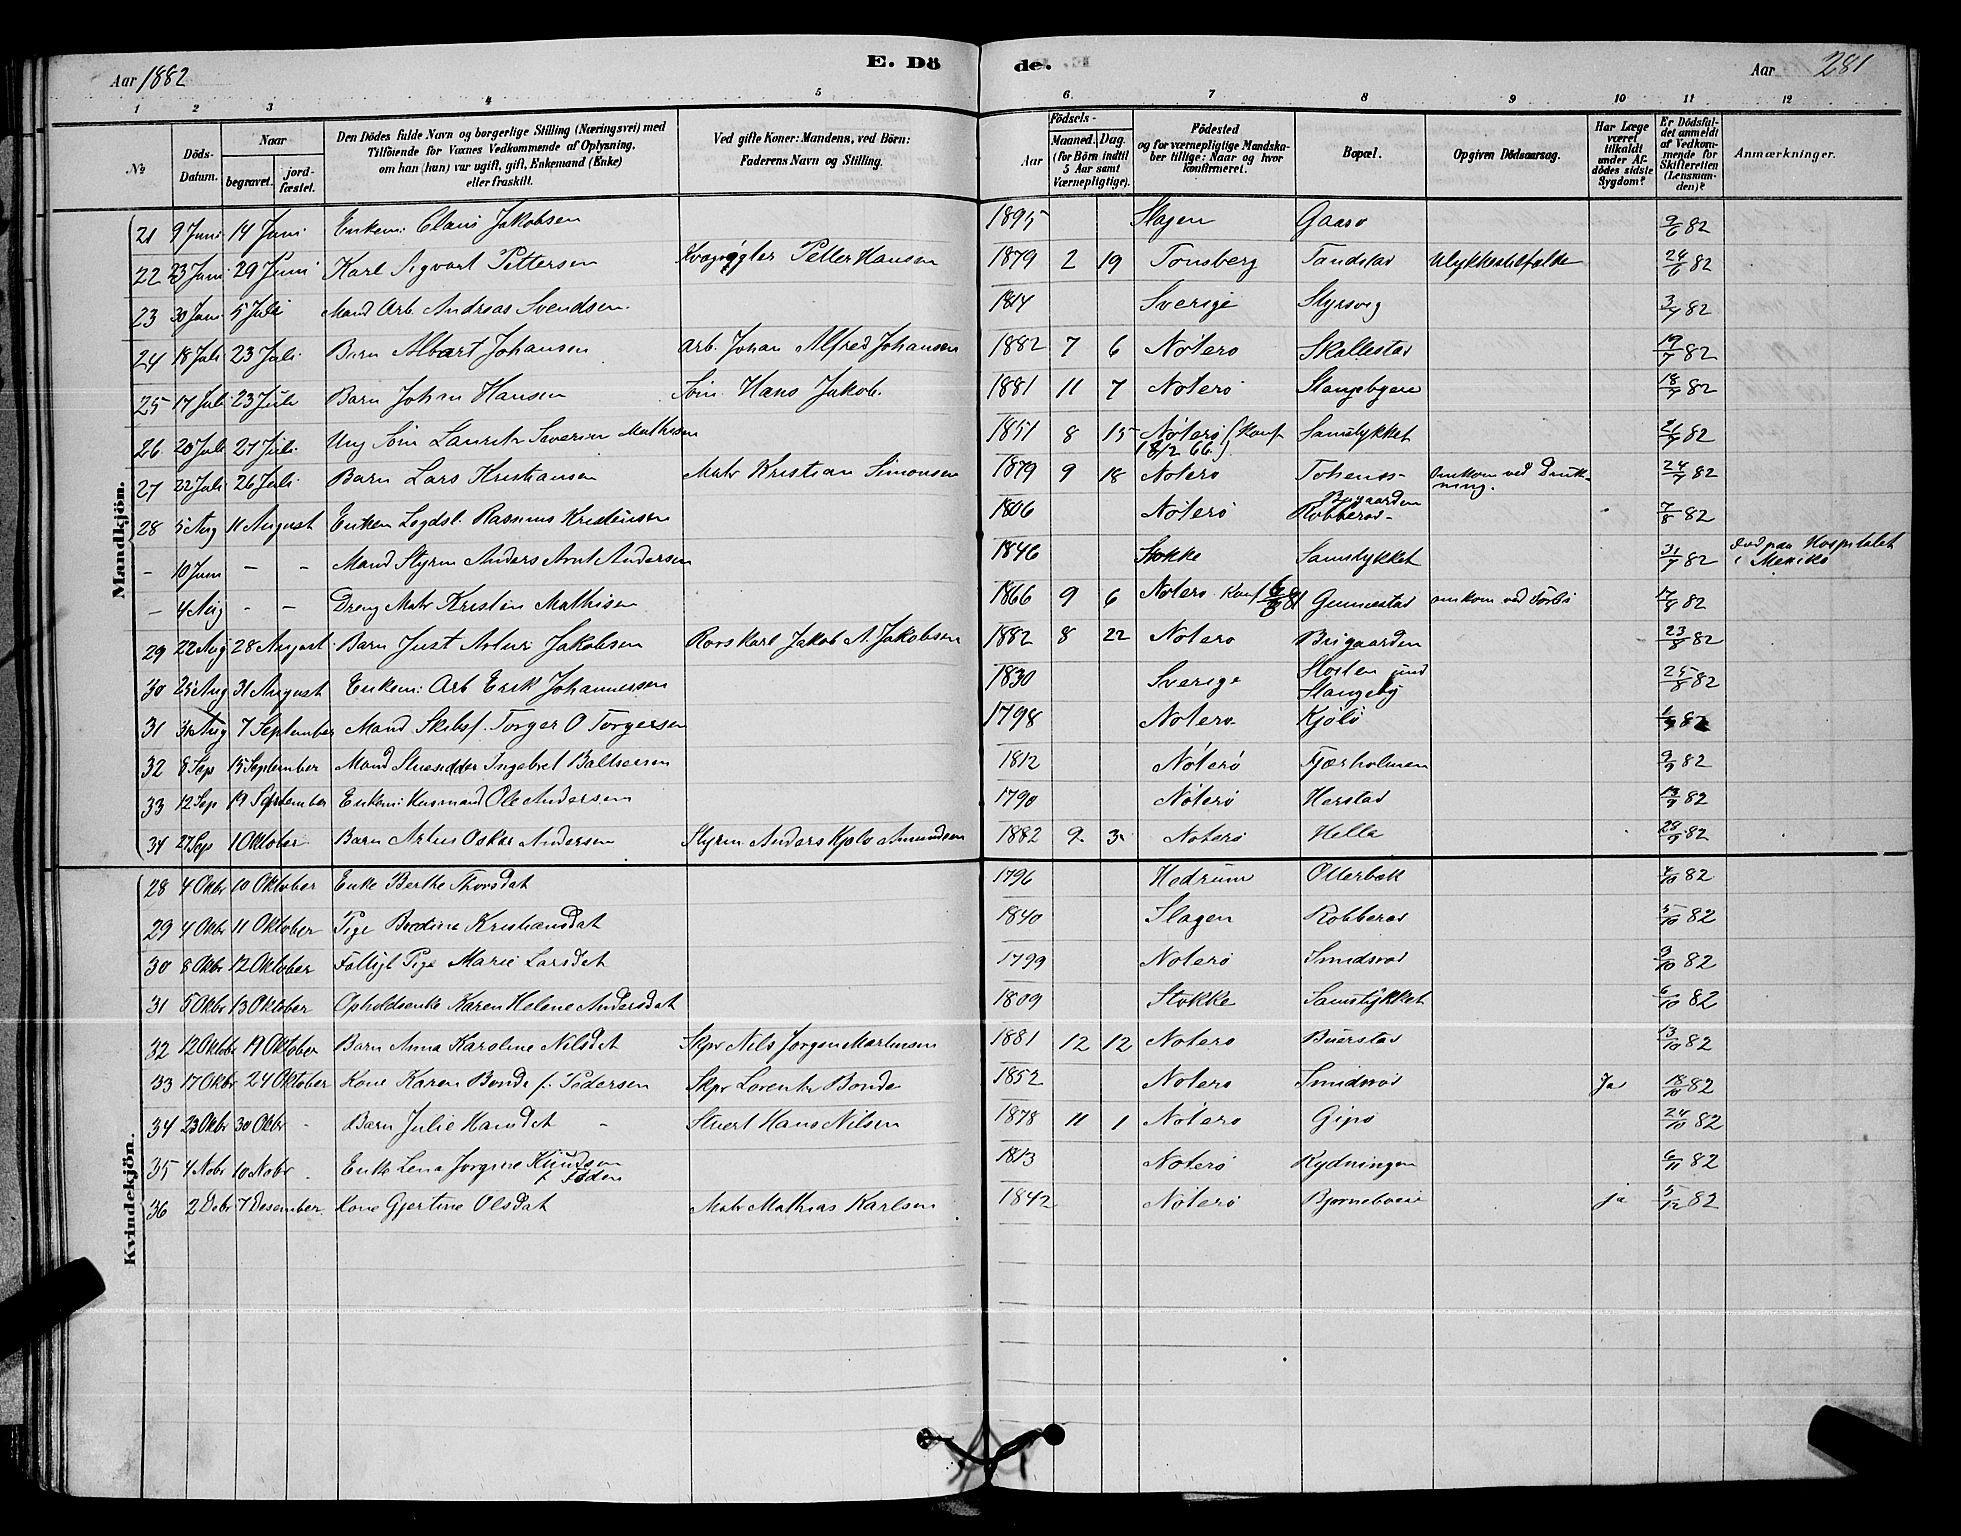 Aar 1882 E. Dö de. Aar 281
1 2 3 4 5 6. 7 8 9 10 11 12
No Döds-Datum. Naar begravet. jordfæstet. Den Dödes fulde Navn og borgerlige Stilling (Næringsvei) med Tilföiende for Voxnes Vedkommende af Oplysning, om han (hun) var ugift, gift, Enkemand (Enke) eller fraskilt. Ved gifte Koner: Mandens, ved Börn: Faderens Navn og Stilling. Aar Födsels- Maaned. Dag. (for Börn indtil 5 Aar samt Værnepligtige). Födested og for værnepligtige Mandskaber tillige: Naar og hvor konfirmeret. Bopæl. Opgiven Dödsaarsag. Har Læge været tilkaldt under Afdödes sidste Sygdom? Er Dödsfaldet anmeldt af Vedkommende for Skifteretten (Lensmanden)? Anmærkninger.
Mandkjön.
21 9 Juni 14 Juni Enkem: Claus Jakobsen 1895 Slagen Gaasø 9/6 82
22 23 Juni 29 Juni Karl Sigvart Pettersen Petter Hansen 1879 2 19 Tonsberg Ulykkestilfælde 24/6 82
23 30 Juni 5 Juli Mand Arb. Andreas Svendsen 1814 Sverige Styrsvig 3/7 82
24 18 Juli 23 Juli Barn Albert Johansen Arb. Johan Alfred Johansen 1882 7 6 Nøterø Skallestad 19/7 82
25 17 Juli 23 Juli Barn Johan Hansen Søm. Hans Jakob. 1881 11 7 Nøterø 18/7 82
26 20 Juli 27 Juli Ung Søm Lauritz Severin Mathisen 1851 8 15 Nøterø (konf 18/2 66). Samstykket 21/7 82
27 22 Juli 26 Juli Barn Lars Kristiansen Matr Kristian Simonsen 1879 9 18 Noterø Omkom ved Drukning. 24/7 82
28 5 Aug 11 August Enkem Legdsl. Rasmus Kristensen 1806 Nøterø Robberød- 7/8 82
- 10 Juni - - Mand Styrm Anders Arnt Andersen 1846 Stokke Samstykket 31/7 82 død paa Hospitalet i Mexiko
- 4 Aug - - Dreng Matr Kristen Mathisen 1866 9 6 Noterø Konf Gunnestad omkom ved Forlis 17/8 82
29 22 Aug 28 August Barn Just Artur Jakobsen Rorskarl Jakob A. Jakobsen 1882 8 22 Noterø Brigaarden 23/8 82
30 25 Aug 31 August Enkem: Arb Erik Johannessen 1830 Sverige Slangeby 25/8 82
31 31 Aug 7 September Mand Skibsf. Torger O Torgersen 1798 Noterø Kjølø 1/9 82
32 8 Sep 15 September Mand Ingebret Baltsersen 1812 Nøterø Fjærholmen 9/9 82
33 12 Sep 19 September Enkem: Husmand Ole Andersen 1790 Nøterø Herstad 13/9 82
34 27 Sep 1 Oktober Barn Artur Oskar Andersen Styrm Anders Kjølø Amundsen 1882 9 3 Noterø Hella 28/9 82
Kvindekjön.
28 4 Okbr 10 Oktober Enke Berthe Thorsdat 1796 Hedrum Otterbæk 4/10 82
29 4 Okbr 11 Oktober Pige Bredine Kristiansdat 1840 Slagen Robberød 5/10 82
30 8 Okbr 12 Oktober Fattigl Pige Marie Larsdat 1799 Noterø Smidsrød 9/10 82
31 5 Okbr 13 Oktober Opholdsenke Karen Helene Andersdat 1809 Stokke Samstykket 6/10 82
32 12 Oktobr 19 Oktober Barn Anna Karoline Nilsdat Skpr Nils Jorgen Martinsen 1881 12 12 Noterø Buerstad 13/10 82
33 17 Okbr 24 Oktober Kone Karen Bonde f. Pedersen Skpr Lorentz Bonde 1852 Noterø Smidsrød Ja 18/10 82
34 23 Okbr 30 Okbr - Barn Julie Hansdat - Stuert Hans Nilsen 1878 11 1 Nøterø Gipø 24/10 82
35 4 Nobr 10 Nobr Enke Lena Jorgine Knudsen 1813 Nøterø Rydningen 6/11 82
36 2 Debr 7 Desember Kone Gjertine Olsdat Matr Mathias Karlsen 1842 Nøterø ja 5/12 82